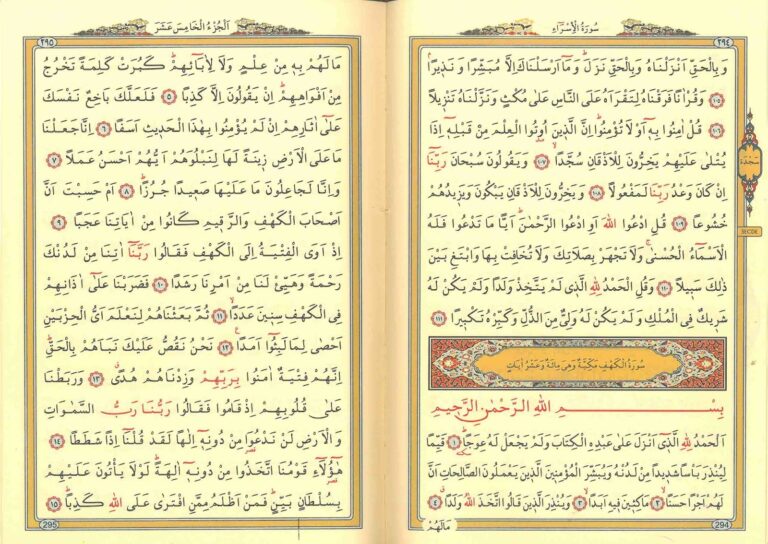 سُورَةُ الْإِسْرَاءِ
٢٩٤
وَبِالْحَقِّ اَنْزَلْنَاهُ وَبِالْحَقِّ نَزَلَ وَمَا اَرْسَلْنَاكَ اِلَّا مُبَشِّرًا وَنَذِيرًا
١٠٥ وَقُرْاٰنًا فَرَقْنَاهُ لِتَقْرَاَهُ عَلَى النَّاسِ عَلٰى مُكْثٍ وَنَزَّلْنَاهُ تَنْزِيلًا
١٠٦ قُلْ اٰمِنُوا بِهٖ اَوْ لَا تُؤْمِنُوا اِنَّ الَّذِينَ اُوتُوا الْعِلْمَ مِنْ قَبْلِهٖ اِذَا
يُتْلٰى عَلَيْهِمْ يَخِرُّونَ لِلْاَذْقَانِ سُجَّدًا ١٠٧ وَيَقُولُونَ سُبْحَانَ رَبِّنَا
اِنْ كَانَ وَعْدُ رَبِّنَا لَمَفْعُولًا ١٠٨ وَيَخِرُّونَ لِلْاَذْقَانِ يَبْكُونَ وَيَزِيدُهُمْ
خُشُوعًا ١٠٩ قُلِ ادْعُوا اللهَ اَوِ ادْعُوا الرَّحْمٰنَ اَيًّا مَا تَدْعُوا فَلَهُ
الْاَسْمَاءُ الْحُسْنٰى وَلَا تَجْهَرْ بِصَلَاتِكَ وَلَا تُخَافِتْ بِهَا وَابْتَغِ بَيْنَ
ذٰلِكَ سَبِيلًا ١١٠ وَقُلِ الْحَمْدُ لِلّٰهِ الَّذِى لَمْ يَتَّخِذْ وَلَدًا وَلَمْ يَكُنْ لَهُ
شَرِيكٌ فِى الْمُلْكِ وَلَمْ يَكُنْ لَهُ وَلِىٌّ مِنَ الذُّلِّ وَكَبِّرْهُ تَكْبِيرًا ١١١
سُورَةُ الْكَهْفِ مَكِّيَّةٌ وَهِىَ مِائَةٌ وَعَشْرُ اٰيَاتٍ
بِسْمِ اللهِ الرَّحْمٰنِ الرَّحِيمِ
اَلْحَمْدُ لِلّٰهِ الَّذِى اَنْزَلَ عَلٰى عَبْدِهِ الْكِتَابَ وَلَمْ يَجْعَلْ لَهُ عِوَجًا ١ قَيِّمًا
لِيُنْذِرَ بَاْسًا شَدِيدًا مِنْ لَدُنْهُ وَيُبَشِّرَ الْمُؤْمِنِينَ الَّذِينَ يَعْمَلُونَ الصَّالِحَاتِ اَنَّ
لَهُمْ اَجْرًا حَسَنًا ٢ مَاكِثِينَ فِيهِ اَبَدًا ٣ وَيُنْذِرَ الَّذِينَ قَالُوا اتَّخَذَ اللهُ وَلَدًا ٤
مَالَهُمْ
294
سَجْدَة
SECDE
اَلْجُزْءُ الْخَامِسَ عَشَرَ
٢٩٥
مَا لَهُمْ بِهٖ مِنْ عِلْمٍ وَلَا لِاٰبَائِهِمْ كَبُرَتْ كَلِمَةً تَخْرُجُ
مِنْ اَفْوَاهِهِمْ اِنْ يَقُولُونَ اِلَّا كَذِبًا ٥ فَلَعَلَّكَ بَاخِعٌ نَفْسَكَ
عَلٰى اٰثَارِهِمْ اِنْ لَمْ يُؤْمِنُوا بِهٰذَا الْحَدِيثِ اَسَفًا ٦ اِنَّا جَعَلْنَا
مَا عَلَى الْاَرْضِ زِينَةً لَهَا لِنَبْلُوَهُمْ اَيُّهُمْ اَحْسَنُ عَمَلًا ٧
وَاِنَّا لَجَاعِلُونَ مَا عَلَيْهَا صَعِيدًا جُرُزًا ٨ اَمْ حَسِبْتَ اَنَّ
اَصْحَابَ الْكَهْفِ وَالرَّقِيمِ كَانُوا مِنْ اٰيَاتِنَا عَجَبًا ٩
اِذْ اَوَى الْفِتْيَةُ اِلَى الْكَهْفِ فَقَالُوا رَبَّنَا اٰتِنَا مِنْ لَدُنْكَ
رَحْمَةً وَهَيِّئْ لَنَا مِنْ اَمْرِنَا رَشَدًا ١٠ فَضَرَبْنَا عَلٰى اٰذَانِهِمْ
فِى الْكَهْفِ سِنِينَ عَدَدًا ١١ ثُمَّ بَعَثْنَاهُمْ لِنَعْلَمَ اَىُّ الْحِزْبَيْنِ
اَحْصٰى لِمَا لَبِثُوا اَمَدًا ١٢ نَحْنُ نَقُصُّ عَلَيْكَ نَبَاَهُمْ بِالْحَقِّ
اِنَّهُمْ فِتْيَةٌ اٰمَنُوا بِرَبِّهِمْ وَزِدْنَاهُمْ هُدًى ١٣ وَرَبَطْنَا
عَلٰى قُلُوبِهِمْ اِذْ قَامُوا فَقَالُوا رَبُّنَا رَبُّ السَّمٰوَاتِ
وَالْاَرْضِ لَنْ نَدْعُوَا مِنْ دُونِهٖ اِلٰهًا لَقَدْ قُلْنَا اِذًا شَطَطًا ١٤
هٰؤُلَاءِ قَوْمُنَا اتَّخَذُوا مِنْ دُونِهٖ اٰلِهَةً لَوْلَا يَاْتُونَ عَلَيْهِمْ
بِسُلْطَانٍ بَيِّنٍ فَمَنْ اَظْلَمُ مِمَّنِ افْتَرٰى عَلَى اللهِ كَذِبًا ١٥
295